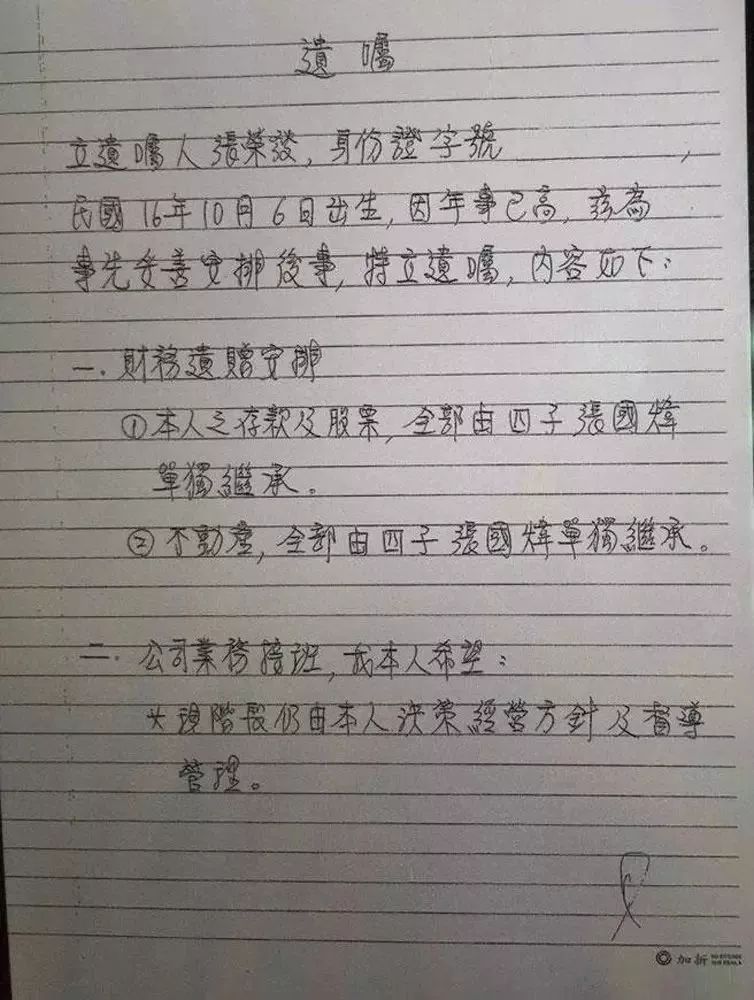 遺囑
立遺囑人張榮發，身份證字號　　　　　，
民國16年10月6日出生，因年事已高，茲為
事先妥善安排後事，特立遺囑，內容如下：
一．財務遺贈安排
①本人之存款及股票，全部由四子張國煒
單獨繼承。
②不動產，全部由四子張國煒單獨繼承。
二．公司業務接班，我本人希望：
*現階段仍由本人決策經營方針及督導
管理。
加折